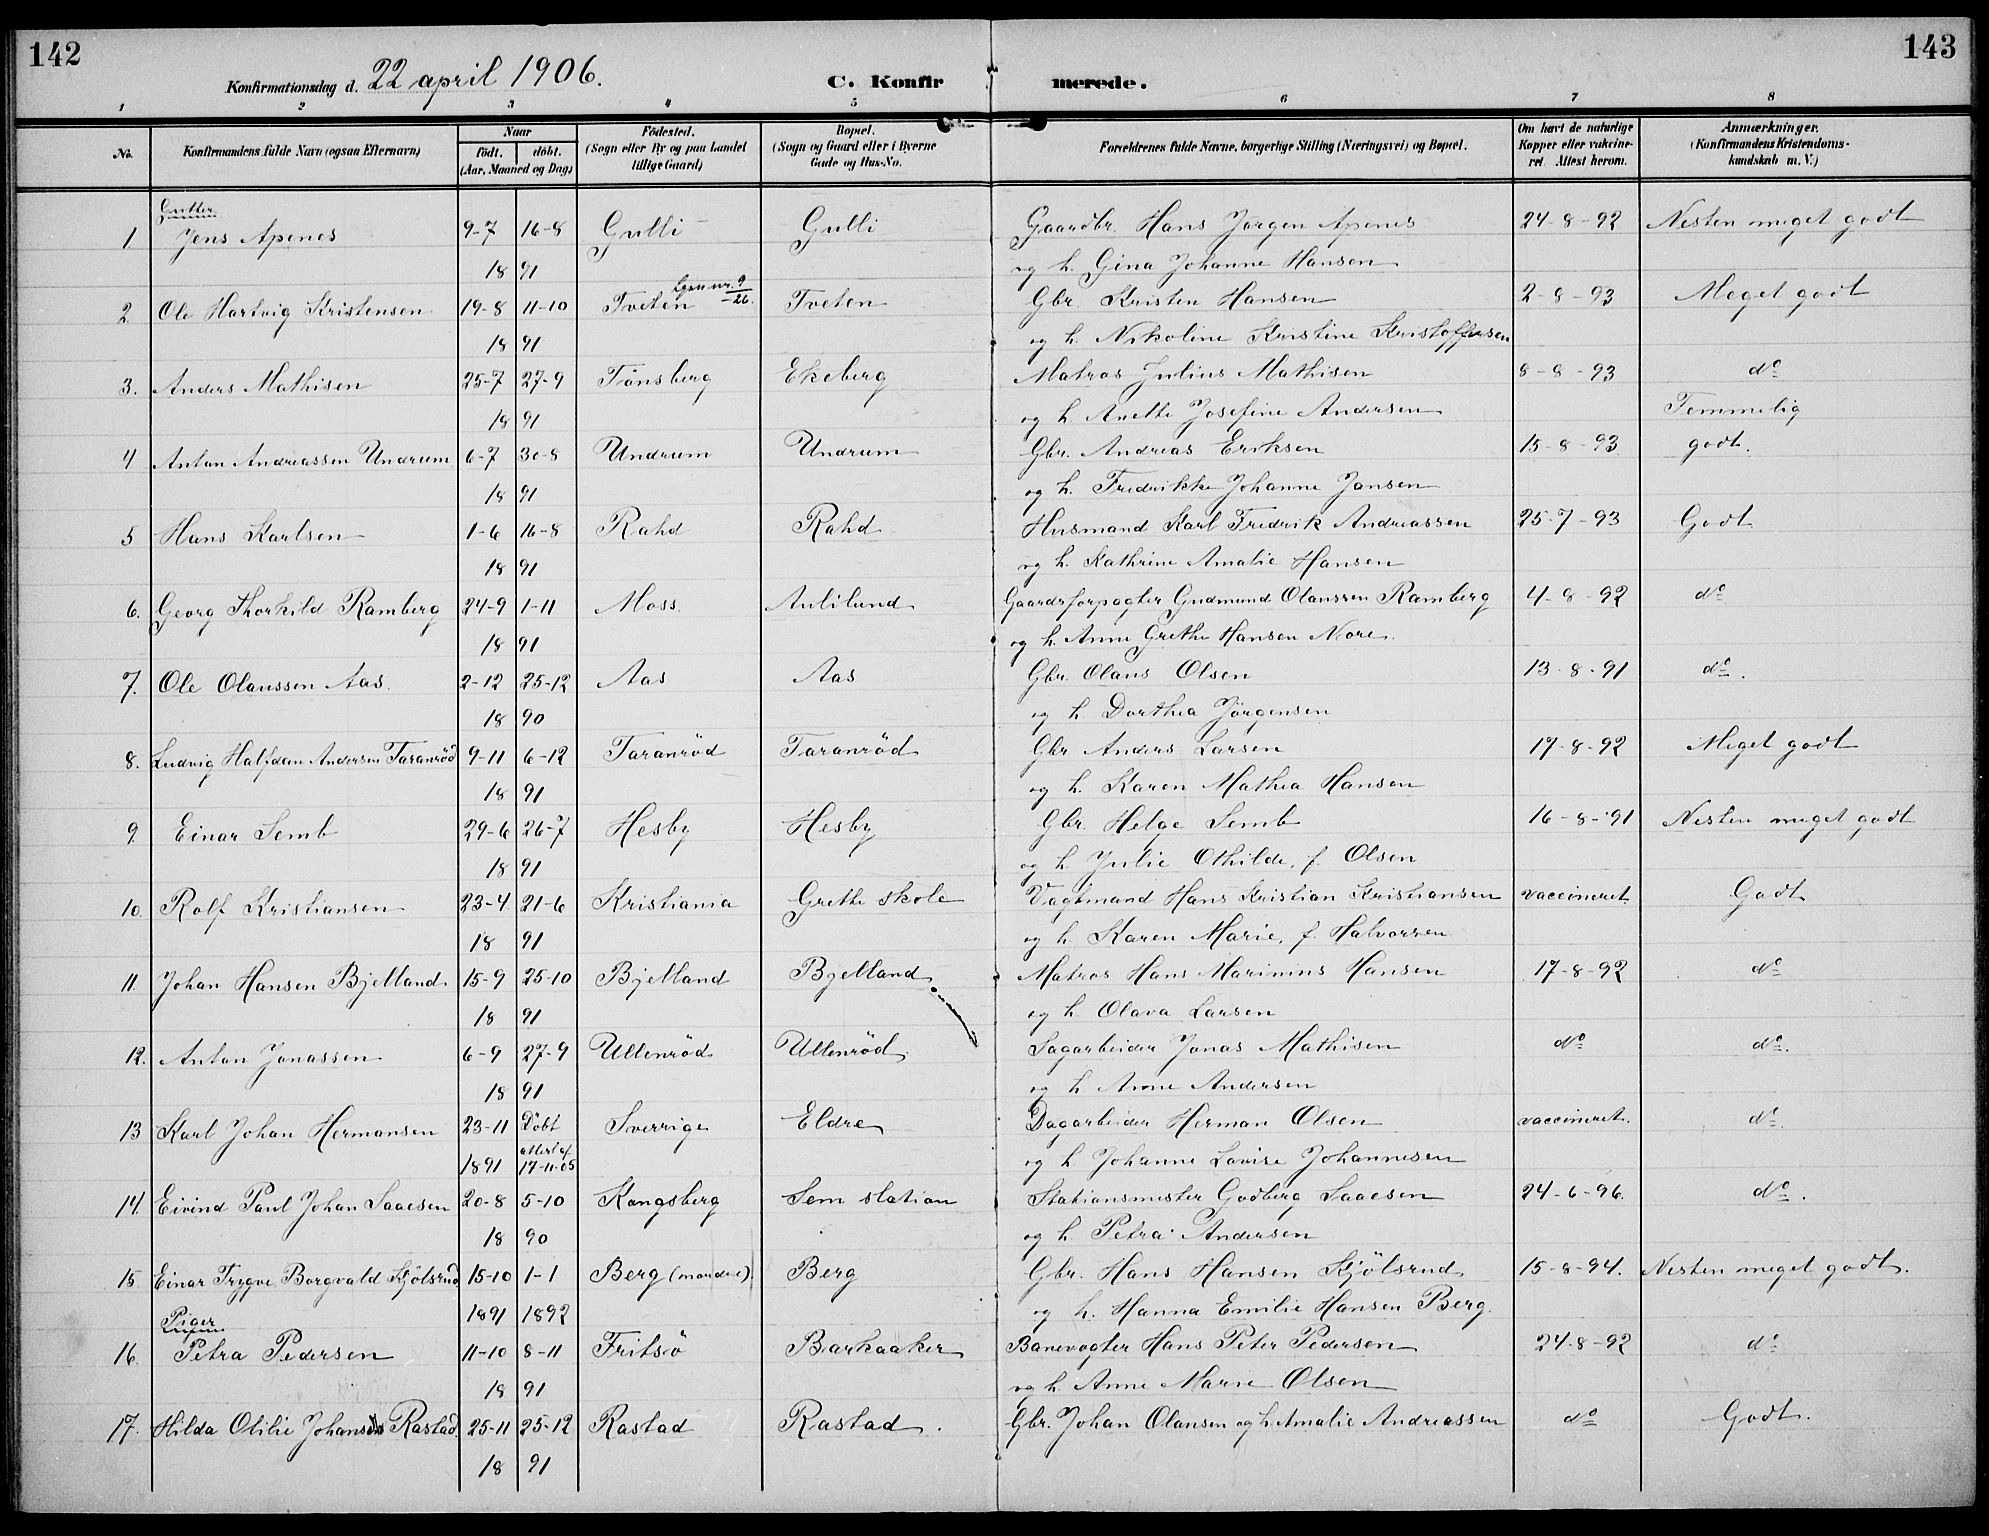 142
143
Konfirmationsdag d. 22 april 1906.
C. Konfirmerede.
1 2 3 4 5 6 7 8
No.
Konfirmandens fulde Navn (ogsaa Efternavn)
Naar
født. døbt.
(Aar, Maaned og Dag)
Fødested.
(Sogn eller By og paa Landet
tillige Gaard)
Bopæl.
(Sogn og Gaard eller i Byerne
Gade og Hus-No.
Forældrenes fulde Navne, borgerlige Stilling (Næringsvei) og Bopæl.
Om havt de naturlige
Kopper eller vakcine-
ret. Attest herom.
Anmærkninger.
(Konfirmandens Kristendoms-
kundskab m. V.)
Gutter.
1 Jens Apenes 9-7 16-8 Gulli Gulli Gaardbr. Hans Jørgen Apenes 24-8-92 Nesten meget godt
18 91 og h. Gina Johanne Hansen
2. Ole Hartvig Kristensen 19-8 11-10 Tveten Tveten Gbr. Kristen Hansen 2-8-93 Meget godt
18 91 og h. Nikoline Kristine Kristoffersen
3. Anders Mathisen 25-7 27-9 Tönsberg Ekeberg Matros Julius Mathisen 8-8-93 do
18 91 og h Anette Josefine Andersen Temmelig
4 Anton Andreassen Undrum 6-7 30-8 Undrum Undrum Gbr. Andreas Eriksen 15-8-93 godt.
18 91 og h. Fredrikke Johanne Jansen
5 Hans Karlsen 1-6 16-8 Rahd Rahd Husmand Karl Fredrik Andreassen 25-7-93 Godt
18 91 og h. Kathrine Amalie Hansen
6. Georg Thorkild Ramberg 24-9 1-11 Moss Aulilund Gaardsforpagter Gudmund Olaussen Ramberg 4-8-92 do
18 91 og h. Anne Grethe Hansen Nore.
7. Ole Olaussen Aas. 2-12 25-12 Aas Aas Gbr. Olaus Olsen 13-8-91 do.
18 90 og h Dorthea Jörgensen
8. Ludvig Halfdan Andersen Taranröd 9-11 6-12 Taranröd Taranröd Gbr Anders Larsen 17-8-92 Meget godt
18 91 og h. Karen Mathea Hansen
9. Einar Semb 29-6 26-7 Hesby Hesby Gbr. Helge Semb 16-8-91 Nesten meget godt
18 91 og h. Julie Othilde, f. Olsen
10. Rolf Kristiansen 23-4 21-6 Kristiania Grette skole Vagtmand Hans Kristian Kristiansen vaccineret. Godt
18 91 og h Karen Marie, f. Halvorsen
11. Johan Hansen Bjelland 15-9 25-10 Bjelland Bjelland Matros Hans Marinius Hansen 17-8-92 do
18 91 og h. Olava Larsen
12. Anton Jonassen 6-9 27-9 Ullenröd Ullenröd. Sagarbeider Jonas Mathisen do do.
18 91 og h Anne Andersen
13 Karl Johan Hermansen 23-11 Döbt Sverrige Eldre Dagarbeider Herman Olsen vaccineret. do.
1891 attest af 17-11-05 og h. Johanne Lovise Johannesen
14. Eivind Paul Johan Saaesen 20-8 5-10 Kongsberg Sem station Stationsmester Godberg Saaesen 24-6-96. do.
18 90 og h. Petra Andersen
15 Einar Trygve Borgvald Kjölsrud 15-10 1-1 Berg Berg Gbr. Hans Hansen Kjölsrud 15-8-94. Nesten meget godt.
1891 1892 og h. Hanna Emilie Hansen Berg.
Piger
16. Petra Pedersen 11-10 8-11 Fritsö Barkaaker Banevogter Hans Peter Pedersen 24-8-92 do
18 91 og h. Anne Marie Olsen
17. Hilda Otilie Johansen Rastad 25-11 25-12 Rastad Rastad. Gbr. Johan Olansen og h. Amalie Andreassen do Godt.
18 91